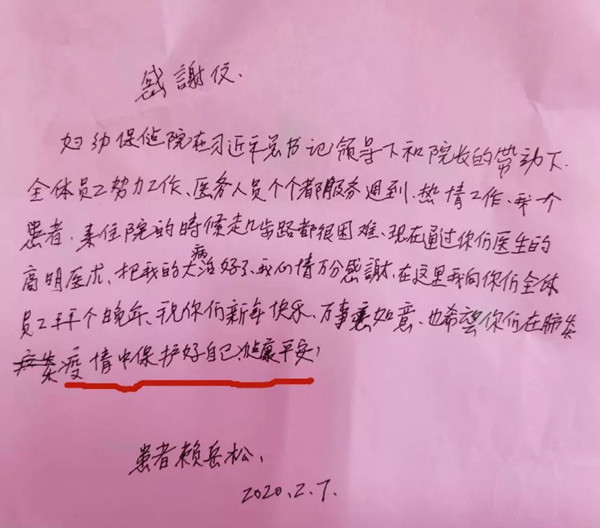 感謝仅.
妇幼保健院在习近平总书记领导下和院长的带动下.
全体员工努力工作、医务人员个个都服务週到.热情工作、我一个
患者.来住院的時候走几步路都很困难、现在通过你们医生的
高明医术、把我的大病治好了、我们情万分感謝、在这里我向你们全体
员工拜个晚年、祝你们新年快乐、万事意如意、也希望你们在肺炎
疫情中保护好自己、健康平安!
患者赖岳松、
2020.2.7.